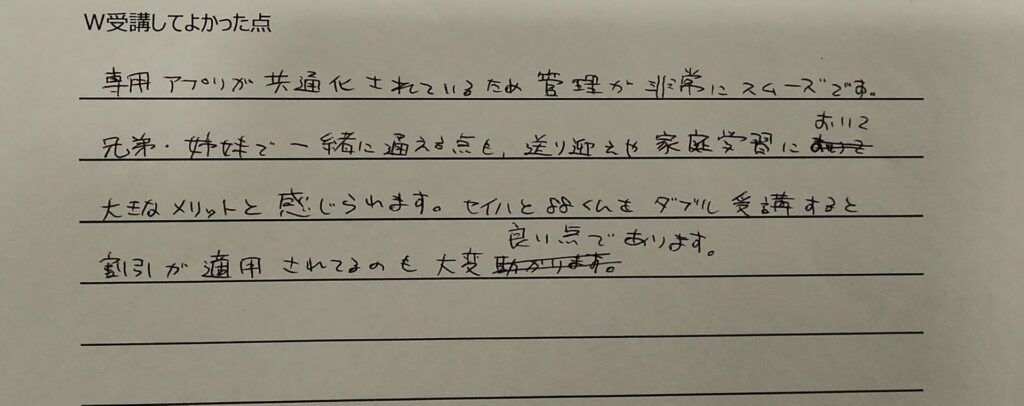 W受講してよかった点
専用アプリが共通化されているため管理が非常にスムーズです。
兄弟・姉妹で一緒に通える点も、送り迎えや家庭学習において
大きなメリットと感じられます。セイハと88くんをダブル受講すると
割引が適用されてるのも大変良い点であります。